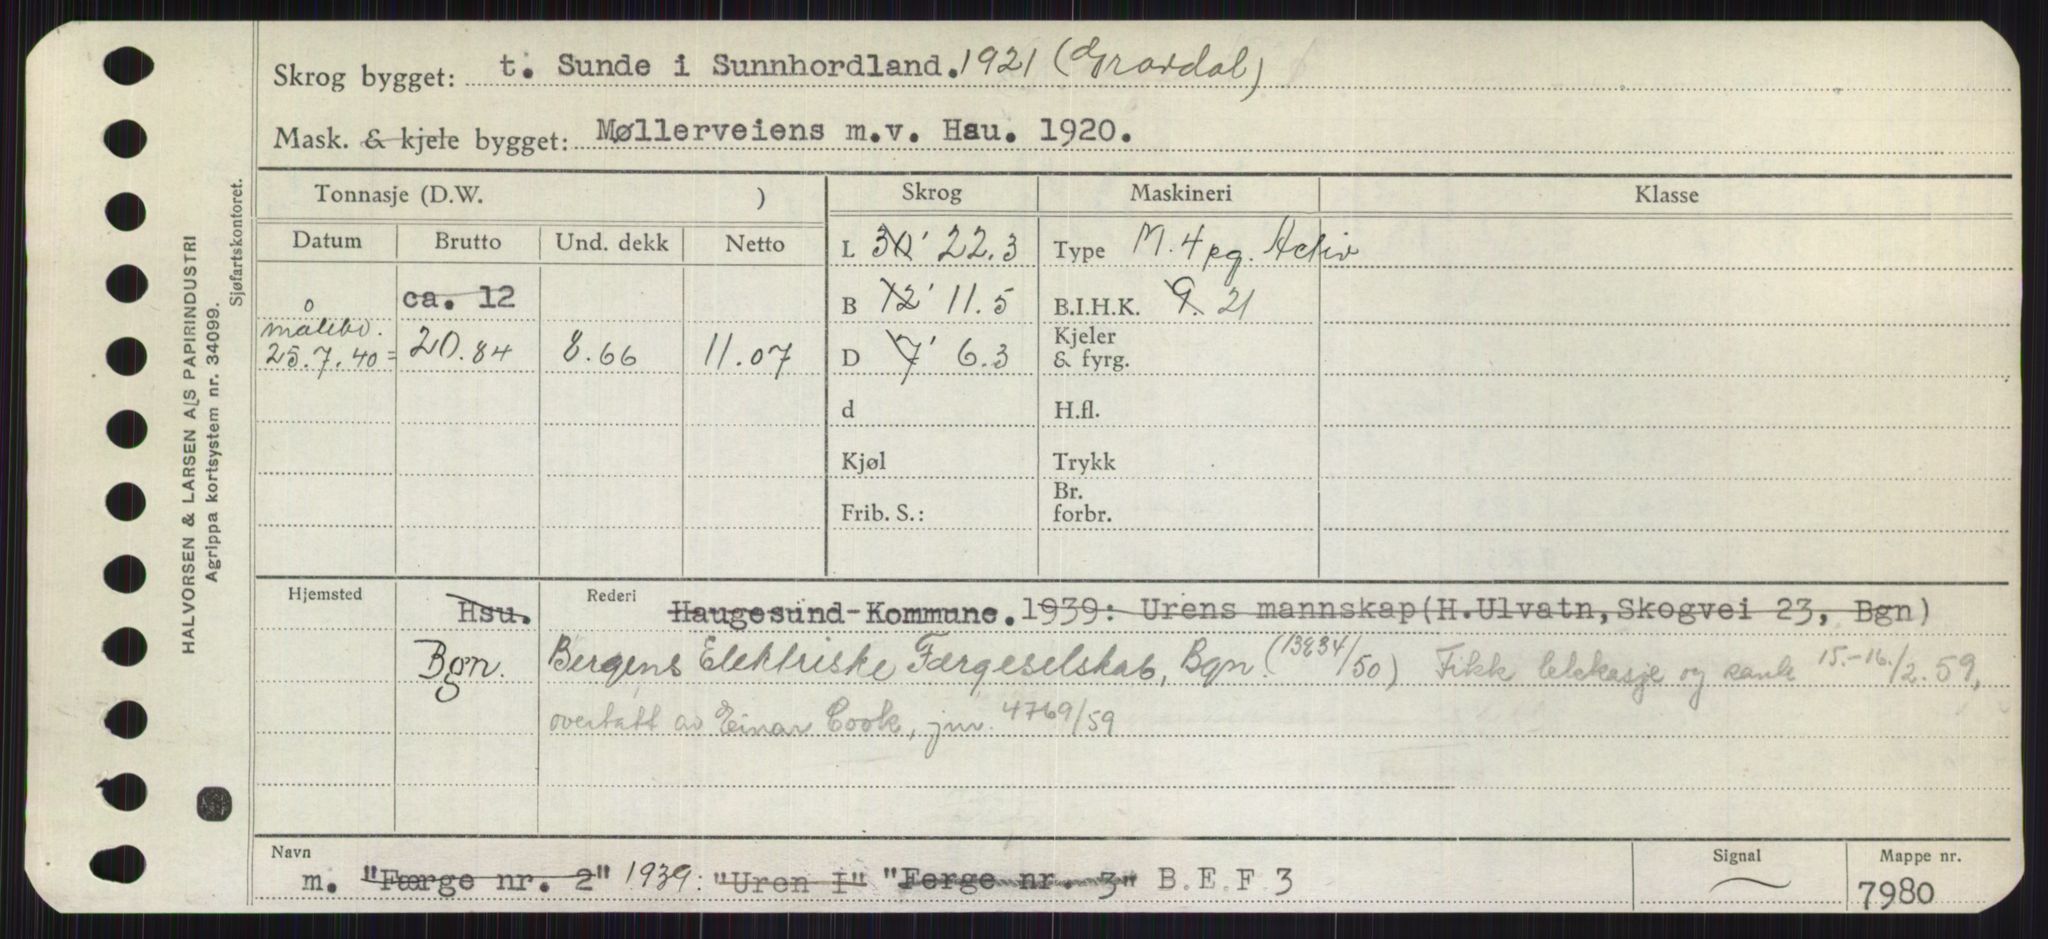 Skrog bygget: t. Sunde i Sunnhordland. 1921 (Gravdal)
Mask. & kjele bygget: Møllerveiens m.v. Hau. 1920.
Tonnasje (D.W. ) Skrog Maskineri Klasse
Datum Brutto Und. dekk Netto L 30' 22.3 Type M. 4 pg. Activ
ca. 12 B 12' 11.5 B.I.H.K. 9. 21
målebr. 25.7.40= 20.84 8.66 11.07 D 7' 6.3 Kjeler & fyrg.
d H.fl.
Kjøl Trykk
Frib. S.: Br. forbr.
Hjemsted Hsu. Rederi Haugesund-Kommune. 1939: Urens mannskap (H.Ulvatn, Skogvei 23, Bgn)
Bgn. Bergens Elektriske Færgeselskab, Bgn. (13834/50) Fikk lekkasje og sank 15.-16./2.59,
overtatt av Einar Cook, jnr. 4769/59
Navn Signal Mappe nr.
m. "Færge nr. 2" 1939: "Uren I" "Ferge nr. 3" B.E.F 3 7980
HALVORSEN & LARSEN A/S PAPIRINDUSTRI
Agrippa kortsystem nr. 34099.
Sjøfartskontoret.